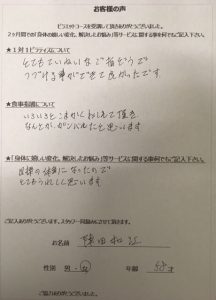 お客様の声
ビューエットコースを受講して頂きありがとうございました。
2ヶ月間での「身体の嬉しい変化、解決したお悩み」等サービスに関する事を何でもご記入下さい。
★1対1ピラティスについて
とてもていねいなご指どうで
つづける事ができて良かったです
★食事指導について
いろいろとこまかくおしえて頂き
なんとか、ガンバレたと思います
★「身体に嬉しい変化、解決したお悩み」等サービスに関する事を何でもご記入下さい。
目標の体重になったので
とてもうれしく思います
ご記入ありがとうございます。スタッフ一同励みにさせて頂きます。
お名前
性別 男・女 年齢 才
ご協力ありがとうございました。